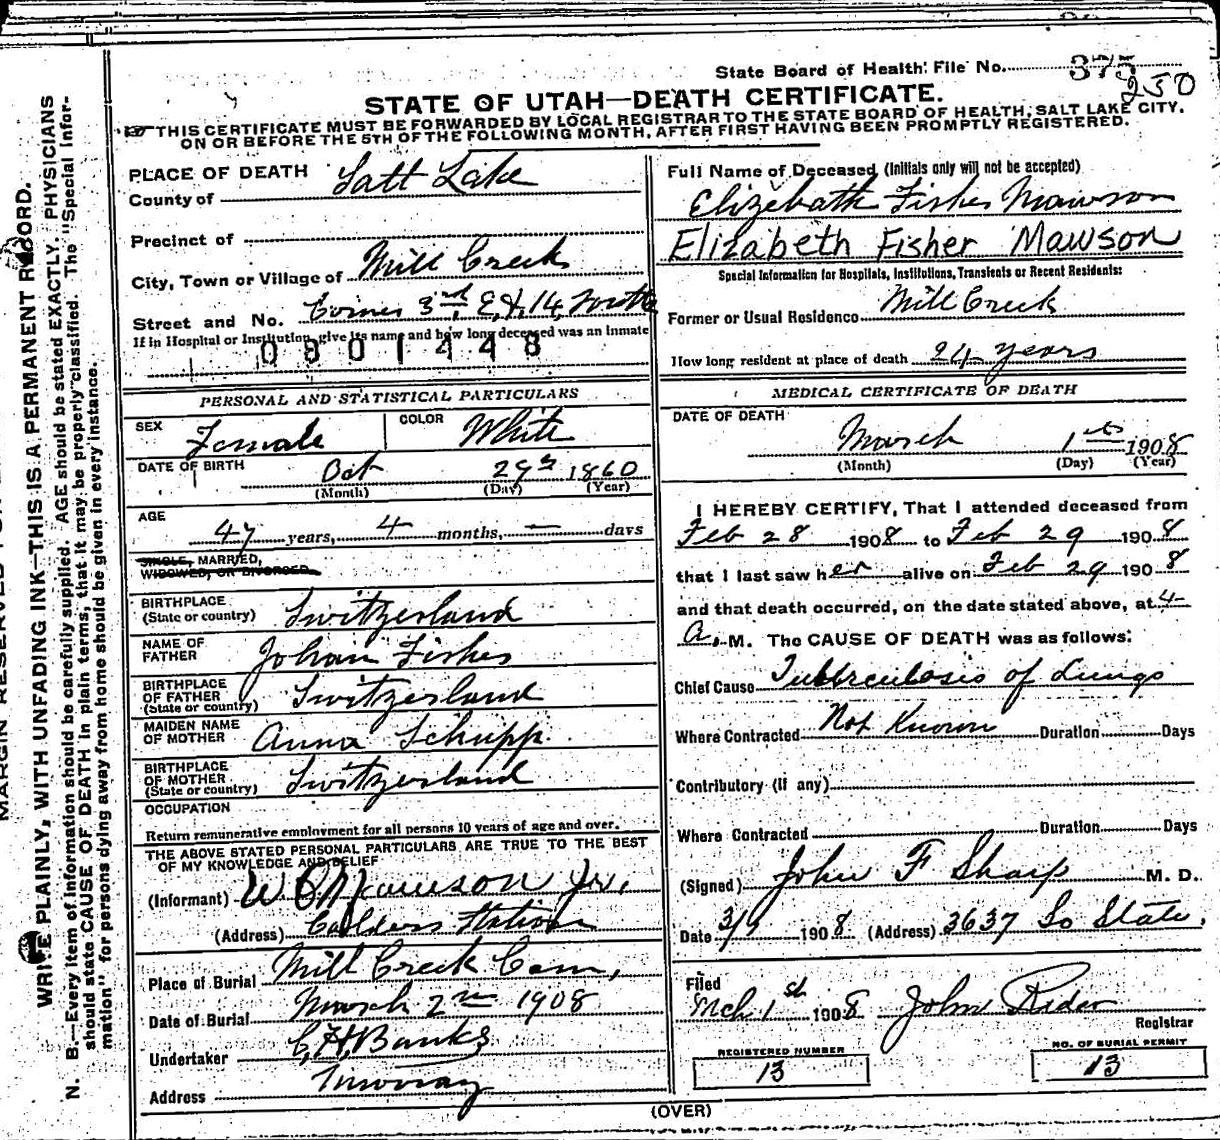 State Board of Health: File No. 375
250
STATE OF UTAH—DEATH CERTIFICATE.
THIS CERTIFICATE MUST BE FORWARDED BY LOCAL REGISTRAR TO THE STATE BOARD OF HEALTH, SALT LAKE CITY.
ON OR BEFORE THE 5TH OF THE FOLLOWING MONTH, AFTER FIRST HAVING BEEN PROMPTLY REGISTERED.
MARGIN RESERVED
WRITE PLAINLY, WITH UNFADING INK—THIS IS A PERMANENT RECORD.
N. B.—Every item of information should be carefully supplied. AGE should be stated EXACTLY. PHYSICIANS
should state CAUSE OF DEATH in plain terms, that it may be properly classified. The "Special Infor-
mation" for persons dying away from home should be given in every instance.
PLACE OF DEATH
County of Salt Lake
Precinct of
City, Town or Village of Mill Creek
Street and No. Corner 3rd E & 14 South
If in Hospital or Institution, give its name and how long deceased was an inmate
0801448
PERSONAL AND STATISTICAL PARTICULARS
SEX Female COLOR White
DATE OF BIRTH Oct 29th 1860
(Month) (Day) (Year)
AGE
47 years, 4 months, — days
SINGLE, MARRIED,
WIDOWED, OR DIVORCED
BIRTHPLACE
(State or country) Switzerland
NAME OF
FATHER Johan Fisher
BIRTHPLACE
OF FATHER
(State or country) Switzerland
MAIDEN NAME
OF MOTHER Anna Schupp
BIRTHPLACE
OF MOTHER
(State or country) Switzerland
OCCUPATION
Return remunerative employment for all persons 10 years of age and over.
THE ABOVE STATED PERSONAL PARTICULARS ARE TRUE TO THE BEST
OF MY KNOWLEDGE AND BELIEF
(Informant) W Mawson Jr.
(Address) Calders Station
Place of Burial Mill Creek Cem,
Date of Burial March 2nd 1908
Undertaker C, H, Banks
Address Murray
Full Name of Deceased (Initials only will not be accepted)
Elizebath Fisher Mawson
Elizabeth Fisher Mawson
Special Information for Hospitals, Institutions, Transients or Recent Residents:
Former or Usual Residence Mill Creek
How long resident at place of death 24 years
MEDICAL CERTIFICATE OF DEATH
DATE OF DEATH
March 1st 1908
(Month) (Day) (Year)
I HEREBY CERTIFY, That I attended deceased from
Feb 28 1908 to Feb 29 1908
that I last saw her alive on Feb 29 1908
and that death occurred, on the date stated above, at 4
A. M. The CAUSE OF DEATH was as follows:
Chief Cause Tubberculosis of Lungs
Where Contracted Not Known Duration Days
Contributory (if any)
Where Contracted Duration Days
(Signed) John F Sharp M. D.
Date 3/1 1908 (Address) 3637 So State.
Filed
Mch 1st 1908 John Rider
Registrar
REGISTERED NUMBER
13
NO. OF BURIAL PERMIT
13
(OVER)